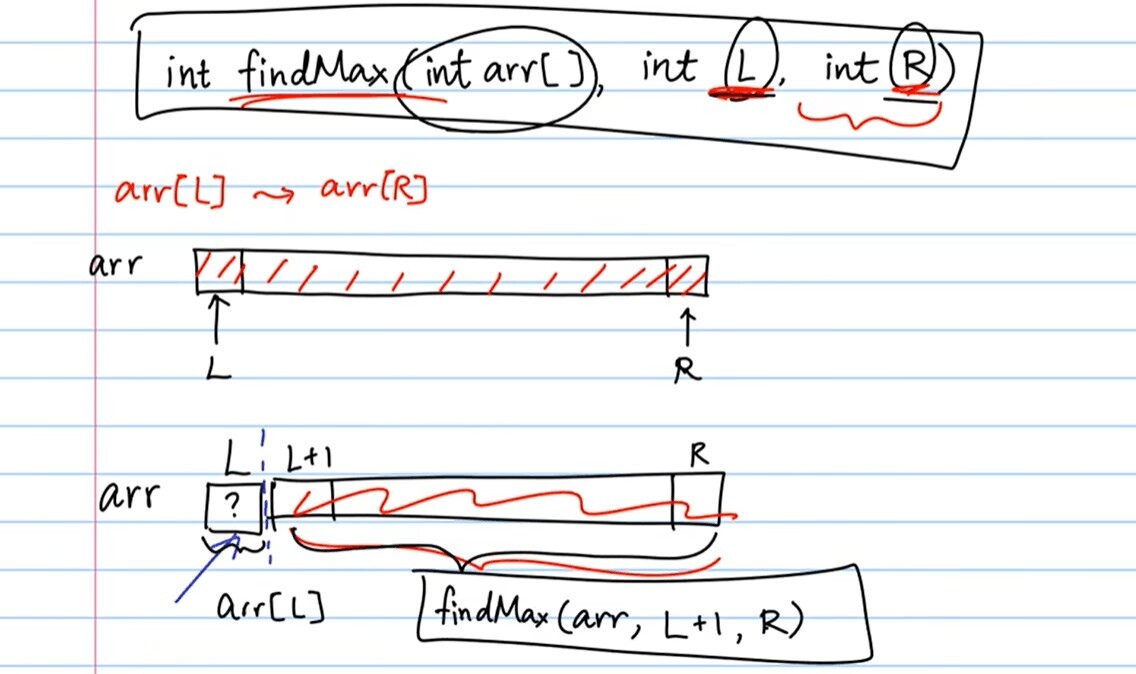 int findMax(int arr[], int L, int R)
arr[L] ⇝ arr[R]
arr
L R
L L+1 R
arr ?
arr[L]
findMax(arr, L+1, R)